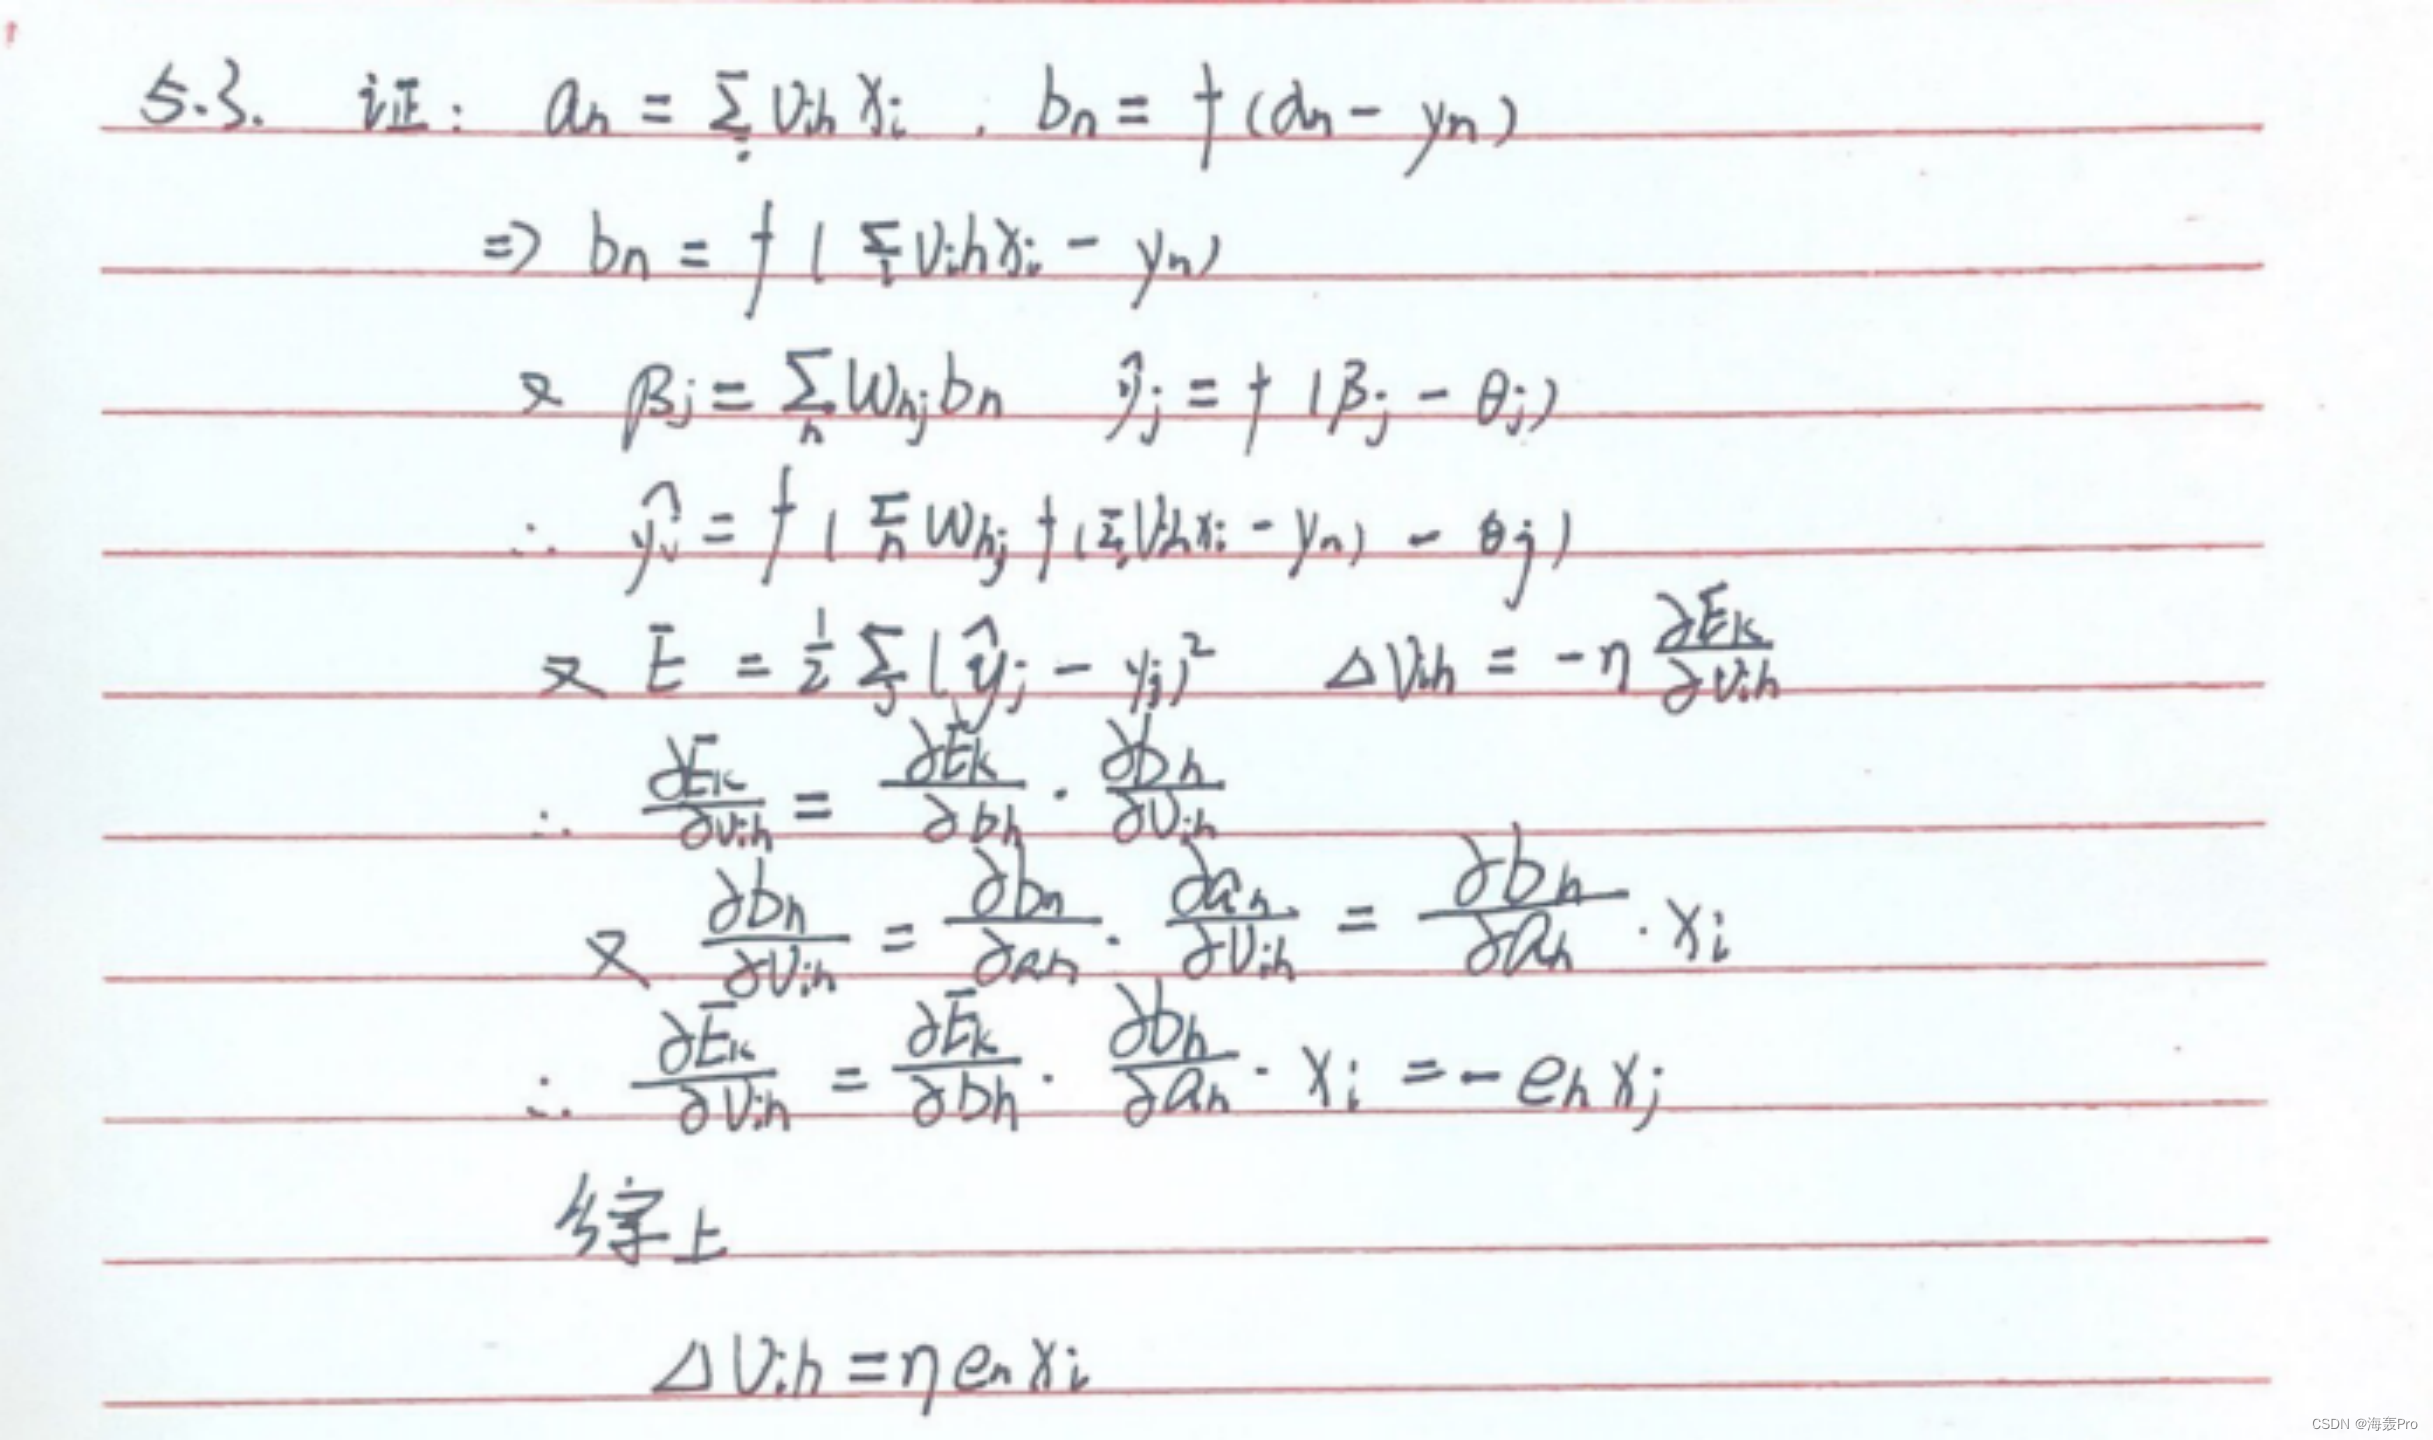 5.3. 证: aₕ = Σᵢ vᵢₕ xᵢ . bₕ = f (αₕ - γₕ)
=> bₕ = f ( Σᵢ vᵢₕ xᵢ - γₕ)
又 βⱼ = Σₕ wₕⱼ bₕ ŷⱼ = f (βⱼ - θⱼ)
∴ ŷⱼ = f ( Σₕ wₕⱼ f (Σᵢ vᵢₕ xᵢ - γₕ) - θⱼ)
又 E = 1/2 Σⱼ (ŷⱼ - yⱼ)² Δvᵢₕ = -η ∂Eₖ/∂vᵢₕ
∴ ∂Eₖ/∂vᵢₕ = ∂Eₖ/∂bₕ · ∂bₕ/∂vᵢₕ
又 ∂bₕ/∂vᵢₕ = ∂bₕ/∂aₕ · ∂aₕ/∂vᵢₕ = ∂bₕ/∂aₕ · xᵢ
∴ ∂Eₖ/∂vᵢₕ = ∂Eₖ/∂bₕ · ∂bₕ/∂aₕ · xᵢ = -eₕ xⱼ
综上
Δvᵢₕ = η eₕ xᵢ
CSDN @海轰Pro